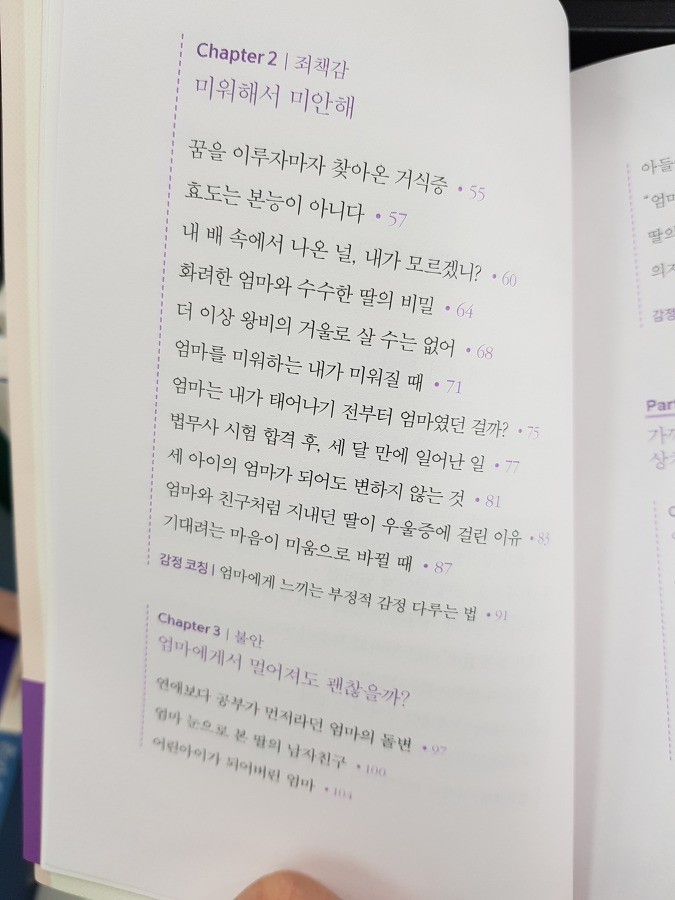 Chapter 2 | 죄책감
미워해서 미안해
꿈을 이루자마자 찾아온 거식증 • 55
효도는 본능이 아니다 • 57
내 배 속에서 나온 널, 내가 모르겠니? • 60
화려한 엄마와 수수한 딸의 비밀 • 64
더 이상 왕비의 거울로 살 수는 없어 • 68
엄마를 미워하는 내가 미워질 때 • 71
엄마는 내가 태어나기 전부터 엄마였던 걸까? • 75
법무사 시험 합격 후, 세 달 만에 일어난 일 • 77
세 아이의 엄마가 되어도 변하지 않는 것 • 81
엄마와 친구처럼 지내던 딸이 우울증에 걸린 이유 • 83
기대려는 마음이 미움으로 바뀔 때 • 87
감정 코칭 | 엄마에게 느끼는 부정적 감정 다루는 법 • 91
Chapter 3 | 불안
엄마에게서 멀어져도 괜찮을까?
연애보다 공부가 먼저라던 엄마의 돌변 • 97
엄마 눈으로 본 딸의 남자친구 • 100
어린아이가 되어버린 엄마 • 104
아들
"엄마
딸의
의지
감정
Part
가까
상처